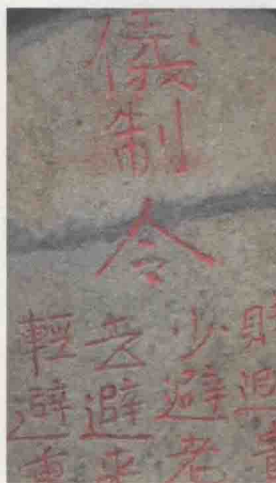 儀制令
賤避貴
少避老
去避來
輕避重